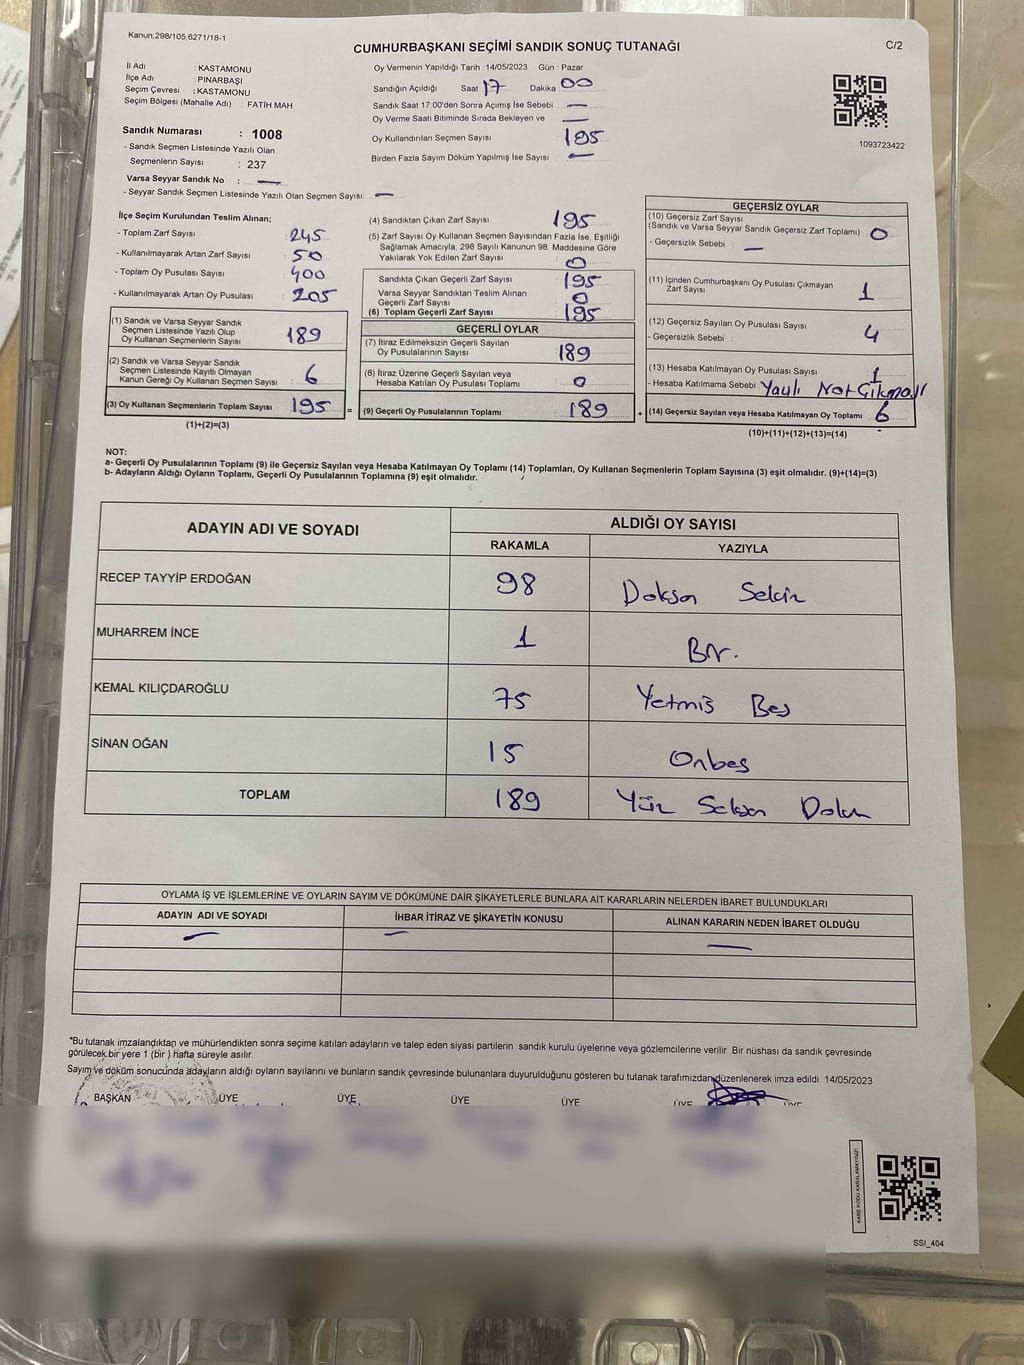 Kanun;298/105,6271/18-1
CUMHURBAŞKANI SEÇİMİ SANDIK SONUÇ TUTANAĞI
C/2
İl Adı : KASTAMONU
İlçe Adı : PINARBAŞI
Seçim Çevresi : KASTAMONU
Seçim Bölgesi (Mahalle Adı) : FATİH MAH
Sandık Numarası : 1008
- Sandık Seçmen Listesinde Yazılı Olan
Seçmenlerin Sayısı : 237
Varsa Seyyar Sandık No : —
- Seyyar Sandık Seçmen Listesinde Yazılı Olan Seçmen Sayısı: —
Oy Vermenin Yapıldığı Tarih : 14/05/2023 Gün : Pazar
Sandığın Açıldığı Saat 17 Dakika 00
Sandık Saat 17:00'den Sonra Açılmış İse Sebebi —
Oy Verme Saati Bitiminde Sırada Bekleyen ve —
Oy Kullandırılan Seçmen Sayısı 195
Birden Fazla Sayım Döküm Yapılmış İse Sayısı —
1093723422
İlçe Seçim Kurulundan Teslim Alınan;
- Toplam Zarf Sayısı 245
- Kullanılmayarak Artan Zarf Sayısı 50
- Toplam Oy Pusulası Sayısı 400
- Kullanılmayarak Artan Oy Pusulası 205
(1) Sandık ve Varsa Seyyar Sandık
Seçmen Listesinde Yazılı Olup
Oy Kullanan Seçmenlerin Sayısı 189
(2) Sandık ve Varsa Seyyar Sandık
Seçmen Listesinde Kayıtlı Olmayan
Kanun Gereği Oy Kullanan Seçmen Sayısı 6
(3) Oy Kullanan Seçmenlerin Toplam Sayısı 195 =
(1)+(2)=(3)
(4) Sandıktan Çıkan Zarf Sayısı 195
(5) Zarf Sayısı Oy Kullanan Seçmen Sayısından Fazla İse, Eşitliği
Sağlamak Amacıyla, 298 Sayılı Kanunun 98. Maddesine Göre
Yakılarak Yok Edilen Zarf Sayısı 0
Sandıkta Çıkan Geçerli Zarf Sayısı 195
Varsa Seyyar Sandıktan Teslim Alınan
Geçerli Zarf Sayısı 0
(6) Toplam Geçerli Zarf Sayısı 195
GEÇERLİ OYLAR
(7) İtiraz Edilmeksizin Geçerli Sayılan
Oy Pusulalarının Sayısı 189
(8) İtiraz Üzerine Geçerli Sayılan veya
Hesaba Katılan Oy Pusulası Toplamı 0
(9) Geçerli Oy Pusulalarının Toplamı 189 +
GEÇERSİZ OYLAR
(10) Geçersiz Zarf Sayısı
(Sandık ve Varsa Seyyar Sandık Geçersiz Zarf Toplamı) : 0
- Geçersizlik Sebebi —
(11) İçinden Cumhurbaşkanı Oy Pusulası Çıkmayan
Zarf Sayısı 1
(12) Geçersiz Sayılan Oy Pusulası Sayısı 4
- Geçersizlik Sebebi :
(13) Hesaba Katılmayan Oy Pusulası Sayısı 1
- Hesaba Katılmama Sebebi
(14) Geçersiz Sayılan veya Hesaba Katılmayan Oy Toplamı 6
(10)+(11)+(12)+(13)=(14)
NOT:
a- Geçerli Oy Pusulalarının Toplamı (9) ile Geçersiz Sayılan veya Hesaba Katılmayan Oy Toplamı (14) Toplamları, Oy Kullanan Seçmenlerin Toplam Sayısına (3) eşit olmalıdır. (9)+(14)=(3)
b- Adayların Aldığı Oyların Toplamı, Geçerli Oy Pusulalarının Toplamına (9) eşit olmalıdır.
ADAYIN ADI VE SOYADI
ALDIĞI OY SAYISI
RAKAMLA YAZIYLA
RECEP TAYYİP ERDOĞAN 98 Doksan Sekiz
MUHARREM İNCE 1 Bir.
KEMAL KILIÇDAROĞLU 75 Yetmiş Beş
SİNAN OĞAN 15 Onbeş
TOPLAM 189 Yüz Seksen Dokuz
OYLAMA İŞ VE İŞLEMLERİNE VE OYLARIN SAYIM VE DÖKÜMÜNE DAİR ŞİKAYETLERLE BUNLARA AİT KARARLARIN NELERDEN İBARET BULUNDUKLARI
ADAYIN ADI VE SOYADI İHBAR İTİRAZ VE ŞİKAYETİN KONUSU ALINAN KARARIN NEDEN İBARET OLDUĞU
— — —
*Bu tutanak imzalandıktan ve mühürlendikten sonra seçime katılan adayların ve talep eden siyasi partilerin sandık kurulu üyelerine veya gözlemcilerine verilir. Bir nüshası da sandık çevresinde
görülecek bir yere 1 (bir ) hafta süreyle asılır.
Sayım ve döküm sonucunda adayların aldığı oyların sayılarını ve bunların sandık çevresinde bulunanlara duyurulduğunu gösteren bu tutanak tarafımızdan düzenlenerek imza edildi. 14/05/2023
BAŞKAN ÜYE ÜYE ÜYE ÜYE ÜYE ÜYE
KARE KODU KARALAMAYINIZ!
SSI_404